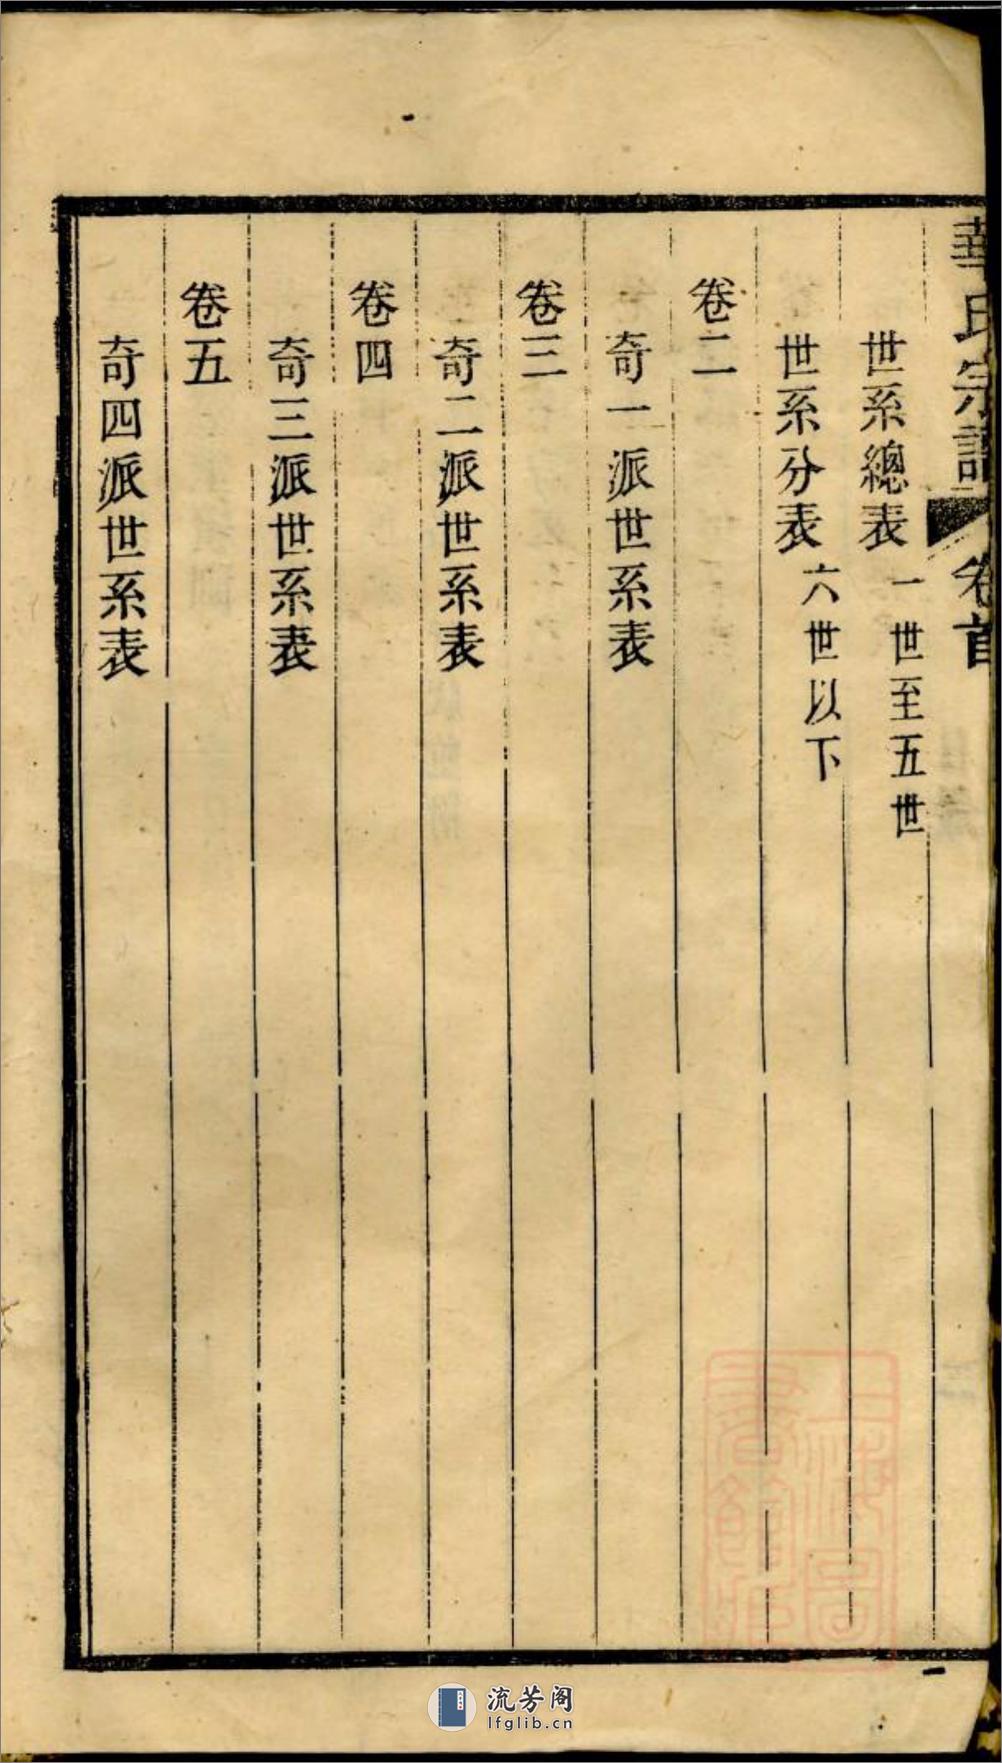 華氏宗譜 卷首
世系總表 一世至五世
世系分表 六世以下
卷二
奇一派世系表
卷三
奇二派世系表
卷四
奇三派世系表
卷五
奇四派世系表
上海圖書館藏
流芳阁
lfglib.cn